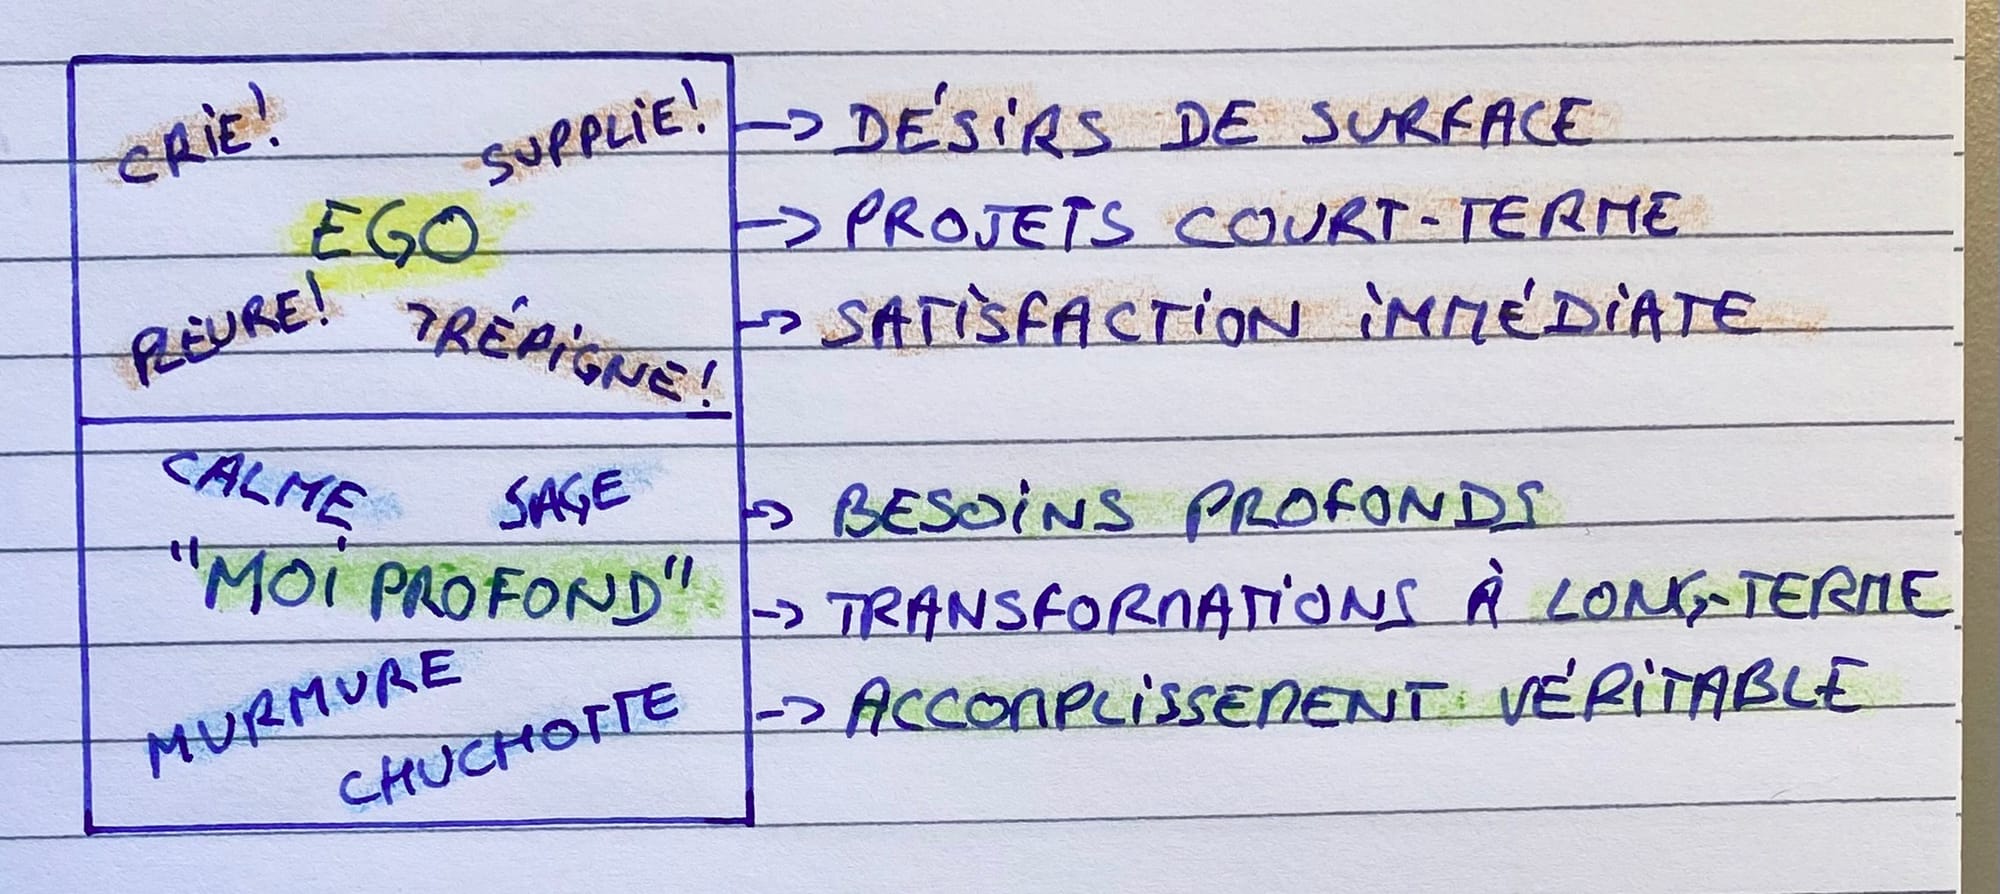 CRIE! SUPPLIE! -> DÉSIRS DE SURFACE
EGO -> PROJETS COURT-TERME
PLEURE! TRÉPIGNE! -> SATISFACTION IMMÉDIATE
CALME SAGE -> BESOINS PROFONDS
"MOI PROFOND" -> TRANSFORMATIONS À LONG-TERME
MURMURE -> ACCOMPLISSEMENT VÉRITABLE
CHUCHOTTE